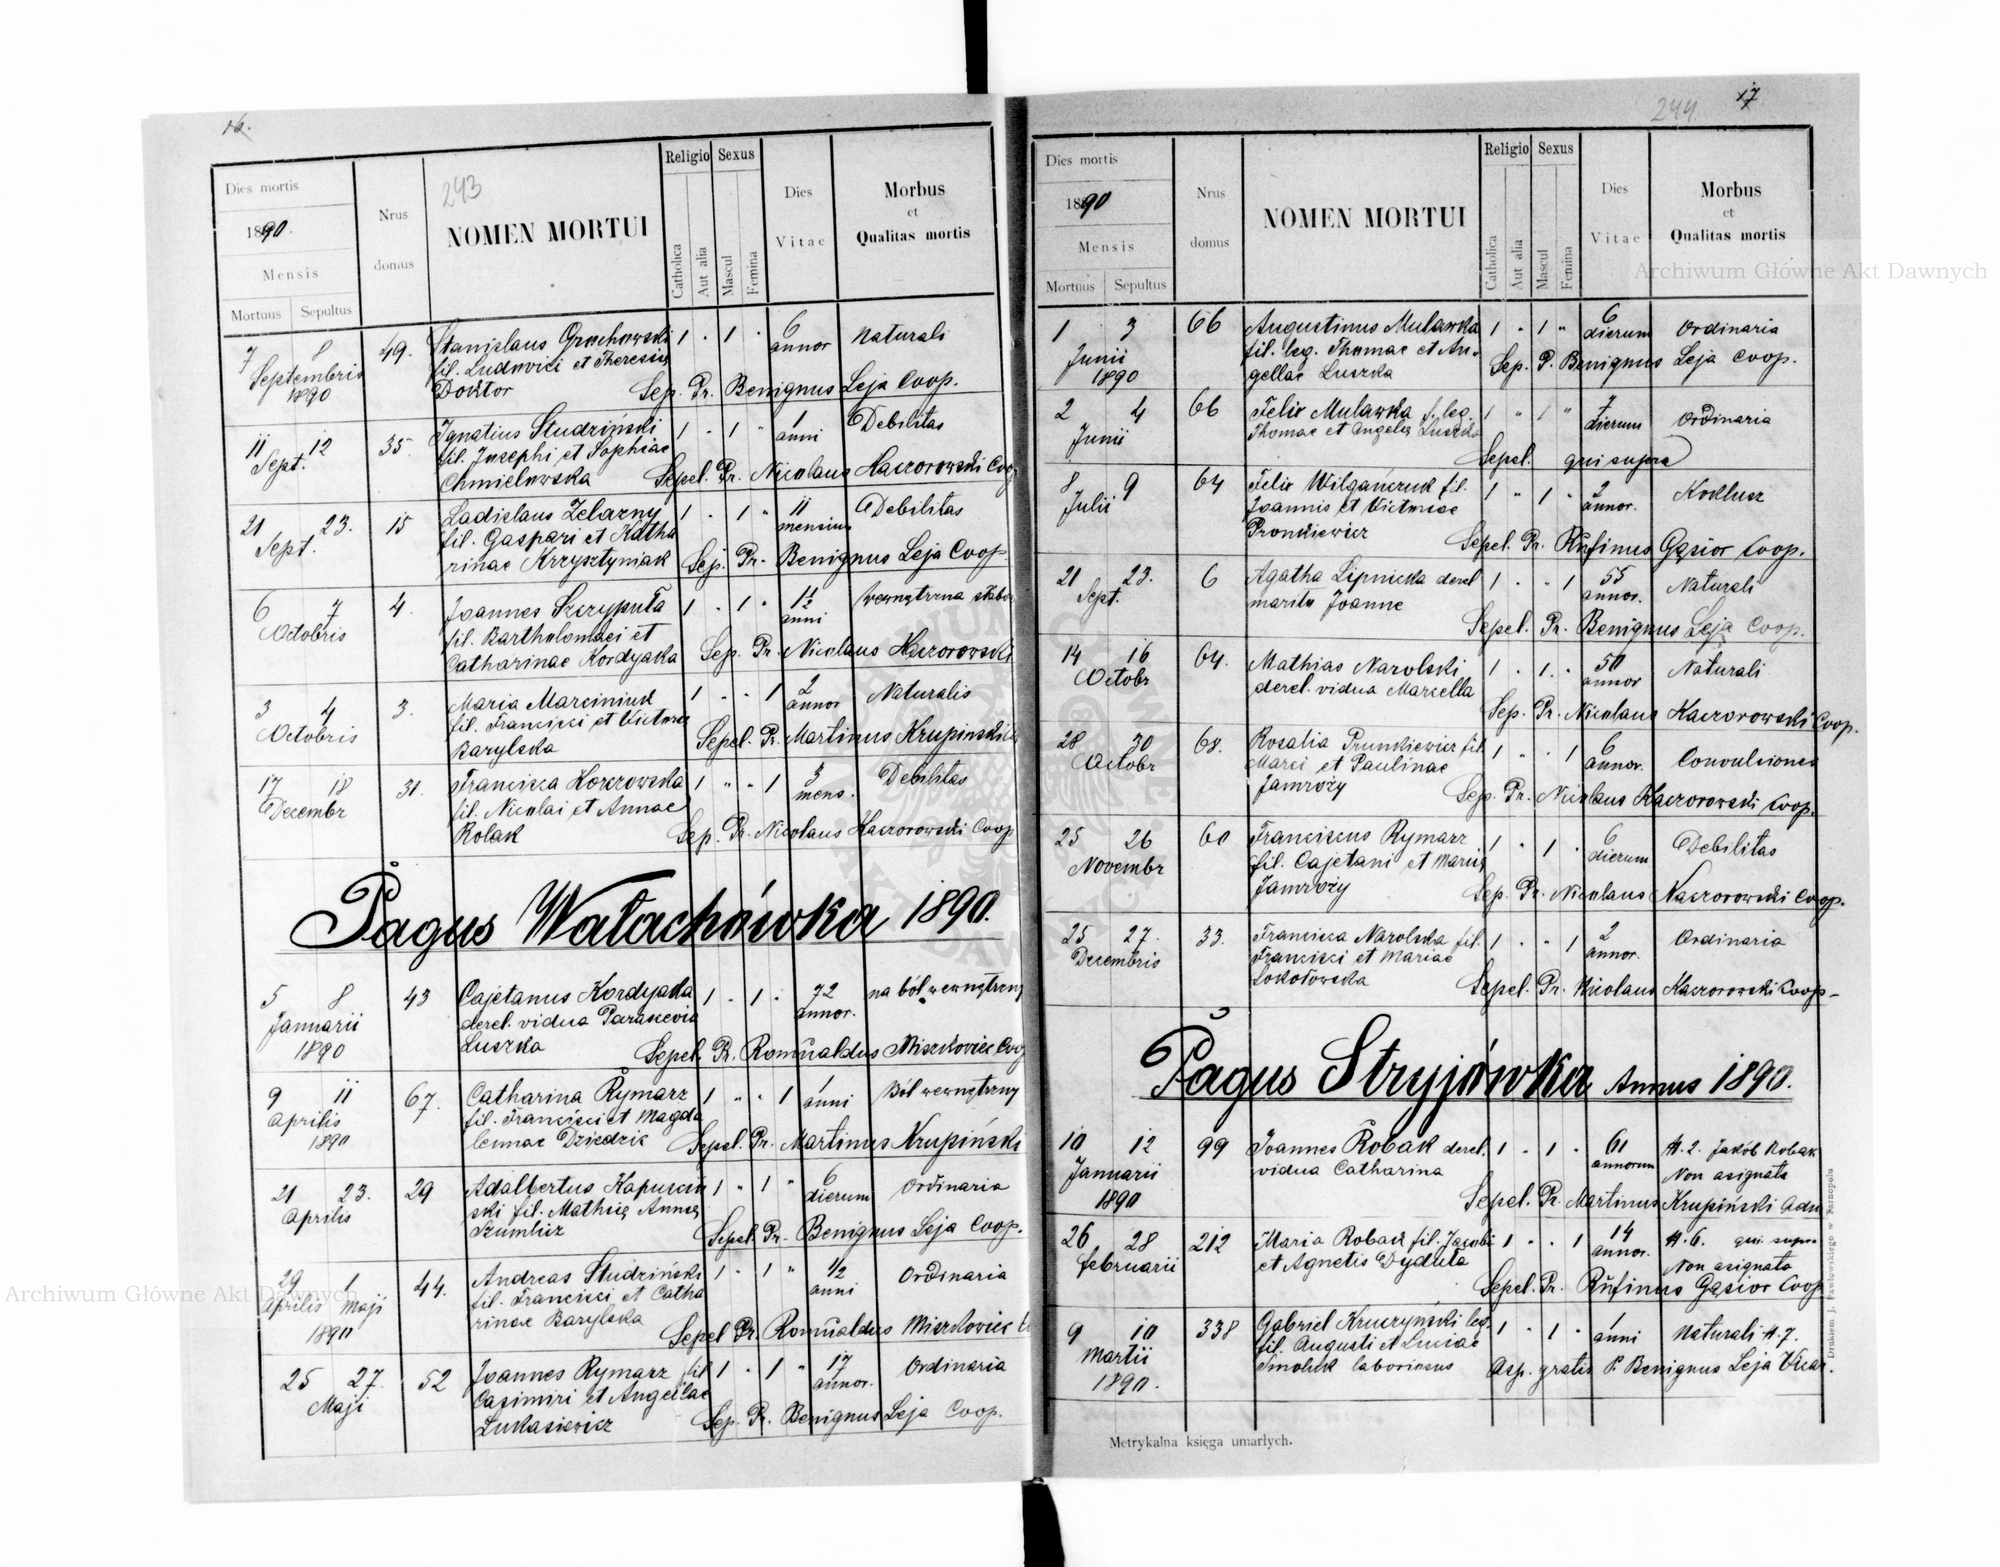 16.
243
Dies mortis
1890.
Mensis
Mortuus Sepultus
Nrus domus
NOMEN MORTUI
Religio
Catholica
Aut alia
Sexus
Mascul
Femina
Dies Vitae
Morbus
et
Qualitas mortis
7 8 49. Stanislaus Grochowski 1 " 1 " 6 Naturali
Septembris fil. Ludovici et Theresiae annor
1890 Doktor Sep. Pr. Benignus Leja Coop.
11 12 35. Ignatius Studziński 1 " 1 " 1 Debilitas
Sept. fil. Josephi et Sophiae anni
Chmielowska Sepel. Pr. Nicolaus Kaczorowski Coop
21 23. 15 Ladislaus Zelazny 1 " 1 " 11 Debilitas
Sept. fil. Gaspari et Katha mensium
rinae Krzysztyniak Sep. Pr. Benignus Leja Coop.
6 7 4. Joannes Szczyputa 1 " 1 " 1 1/2 wewnętrzna słabo
Octobris fil. Bartholomaei et anni
Catharinae Kordyaka Sep. Pr. Nicolaus Kaczorowski
3 4 3. Maria Marciniuk 1 " " 1 2 Naturalis
Octobris fil. Francisci et Victoriae annor
Barylska Sepel. Pr. Martinus Krupinski
17 18 31. Francisca Korczowska 1 " " 1 3 Debilitas
Decembr fil. Nicolai et Annae mens.
Rolak Sep. Pr. Nicolaus Kaczorowski Coop
Pagus Wałachówka 1890.
5 8 43 Cajetanus Kordyaka 1 " 1 " 72 na ból wewnętrzny
Januarii derel. vidua Parascevia annor.
1890 Luszka Sepel. Pr. Romualdus Miszkoviec Coop
9 11 67. Catharina Rymarz 1 " " 1 1 Ból wewnętrzny
Aprilis fil. Francisci et Magda anni
1890 lennae Dziedzic Sepel. Pr. Martinus Krupiński
21 23. 29 Adalbertus Kapuściń 1 " 1 " 6 Ordinaria
Aprilis ski fil. Mathiae Annae dierum
Szumlicz Sepel. Pr. Benignus Leja Coop.
29 1 44. Andreas Studziński 1 " 1 " 1/2 Ordinaria
Aprilis Maji fil. Francisci et Catha anni
1890 rinae Barylska Sepel Pr. Romualdus Miszkoviec
25 27. 52 Joannes Rymarz fil 1 " 1 " 17 Ordinaria
Maji Casimiri et Angellae annor.
Lukasiewicz Sep. Pr. Benignus Leja Coop.
244. 17
Dies mortis
1890
Mensis
Mortuus Sepultus
Nrus domus
NOMEN MORTUI
Religio
Catholica
Aut alia
Sexus
Mascul
Femina
Dies Vitae
Morbus
et
Qualitas mortis
1 3 66 Augustinus Mulawka 1 " 1 " 6 Ordinaria
Junii fil. leg. Thomae et An- dierum
1890 gellae Luszka Sep. P. Benignus Leja Coop.
2 4 66 Felix Mulawka f. leg. 1 " 1 " 7 Ordinaria
Junii Thomae et Angelae Luszka dierum
Sepel. qui supra
8 9 64 Felix Wilgańczuk fil. 1 " 1 " 2 Koklusz
Julii Joannis et Victoriae annor.
Pronkiewicz Sepel. Pr. Rufinus Gąsior Coop.
21 23. 6 Agatha Lipnicka derel 1 " " 1 55 Naturali
Sept. marito Joanne annor.
Sepel. Pr. Benignus Leja Coop.
14 16 64. Mathias Narolski 1 " 1 " 50 Naturali
Octobr derel. vidua Marcella annor
Sep. Pr. Nicolaus Kaczorowski Coop.
28 30 68. Rosalia Prunkiewicz fil 1 " " 1 6 Convulsiones
Octobr Marci et Paulinae annor.
Jamroży Sep. Pr. Nicolaus Kaczorowski Coop.
25 26 60 Franciscus Rymarz 1 " 1 " 6 Debilitas
Novembr fil. Cajetani et Mariae dierum
Jamroży Sep. Pr. Nicolaus Kaczorowski Coop.
25 27. 33. Francisca Narolska fil. 1 " " 1 2 Ordinaria
Decembris Francisci et Mariae annor.
Sokołowska Sepel. Pr. Nicolaus Kaczorowski Coop-
Pagus Stryjówka Annus 1890.
10 12 99 Joannes Robak derel. 1 " 1 " 61 #. 2. Jakób Robak
Januarii vidua Catharina annorum Non asignata
1890 Sepel. Pr. Martinus Krupiński Adm
26 28 212 Maria Robak fil. Jacobi 1 " " 1 14 #. 6. qui supra
februarii et Agnetis Dyduła annor. Non asignata
Sepel. Pr. Rufinus Gąsior Coop
9 10 338 Gabriel Kruczyński leg. 1 " 1 " 1 Naturali #. 7.
Martii fil. Augusti et Luciae anni
1890. Smoluk laboriosus Asp. gratis P. Benignus Leja Vicar.
Metrykalna księga umarłych.
Drukiem J. Pawłowskiego w Tarnopolu
Archiwum Główne Akt Dawnych
Archiwum Główne Akt Dawnych